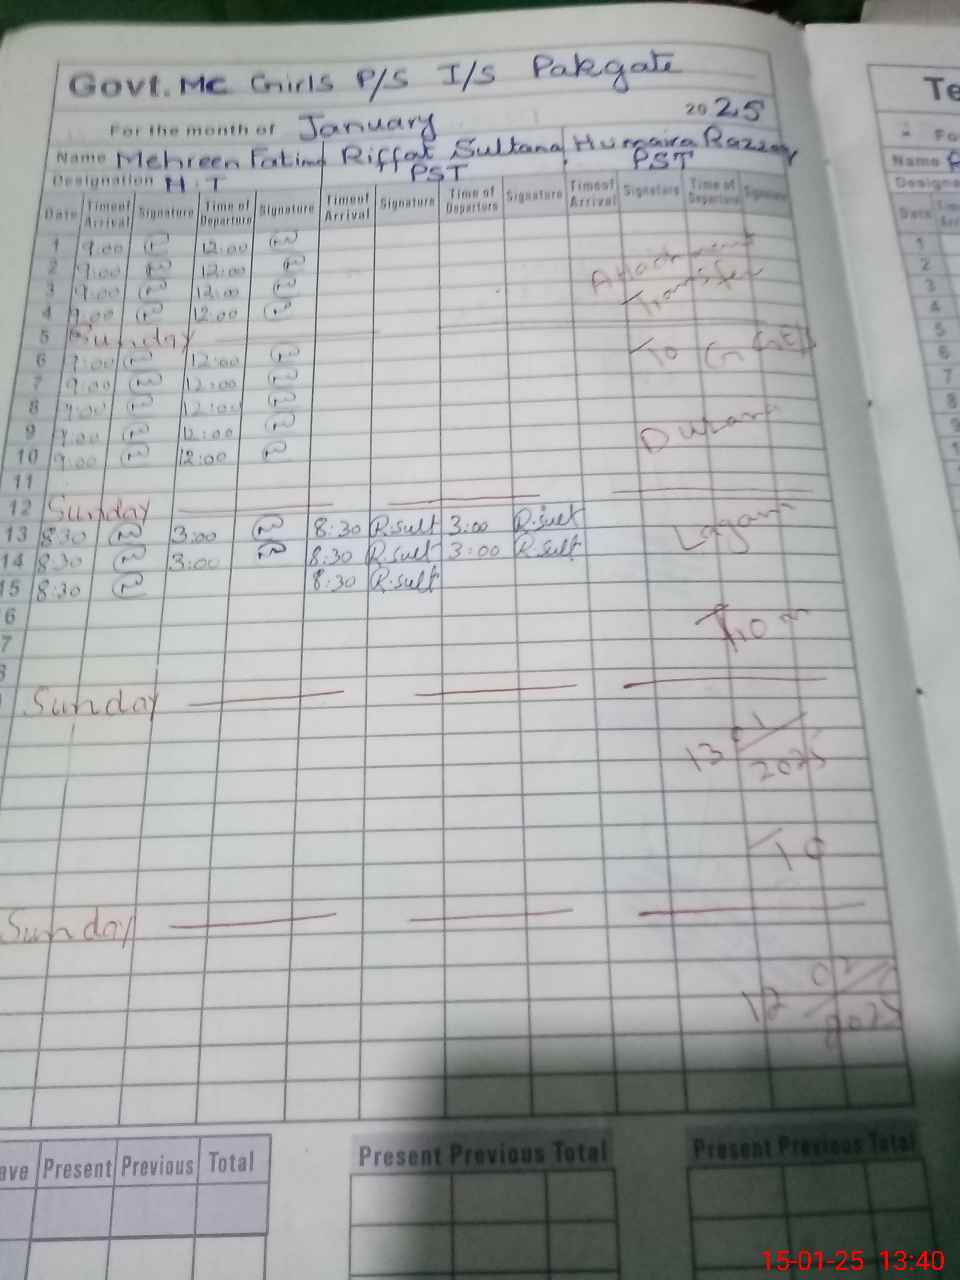 Govt. MC Girls P/S I/S Pakgate
For the month of January 2025
Name Mehreen Fatima Riffat Sultana Humaira Razzaq
Designation H.T PST PST
Date Time of Arrival Signature Time of Departure Signature Time of Arrival Signature Time of Departure Signature Time of Arrival Signature Time of Departure Signature
1 9:00 12:00
2 9:00 12:00
3 9:00 12:00
4 9:00 12:00
5 Sunday
6 9:00 12:00
7 9:00 12:00
8 9:00 12:00
9 9:00 12:00
10 9:00 12:00
11
12 Sunday
13 8:30 3:00 8:30 R.sult 3:00 R.sult
14 8:30 3:00 8:30 R.sult 3:00 R.sult
15 8:30 8:30 R.sult
6
7
Sunday
Sunday
Attachment
Transfer
To
From
13
2025
To
12
2025
ave Present Previous Total
Present Previous Total
Present Previous Total
Te
Fo
Name
Designa
Date
1
2
3
4
5
6
7
8
9
15-01-25 13:40